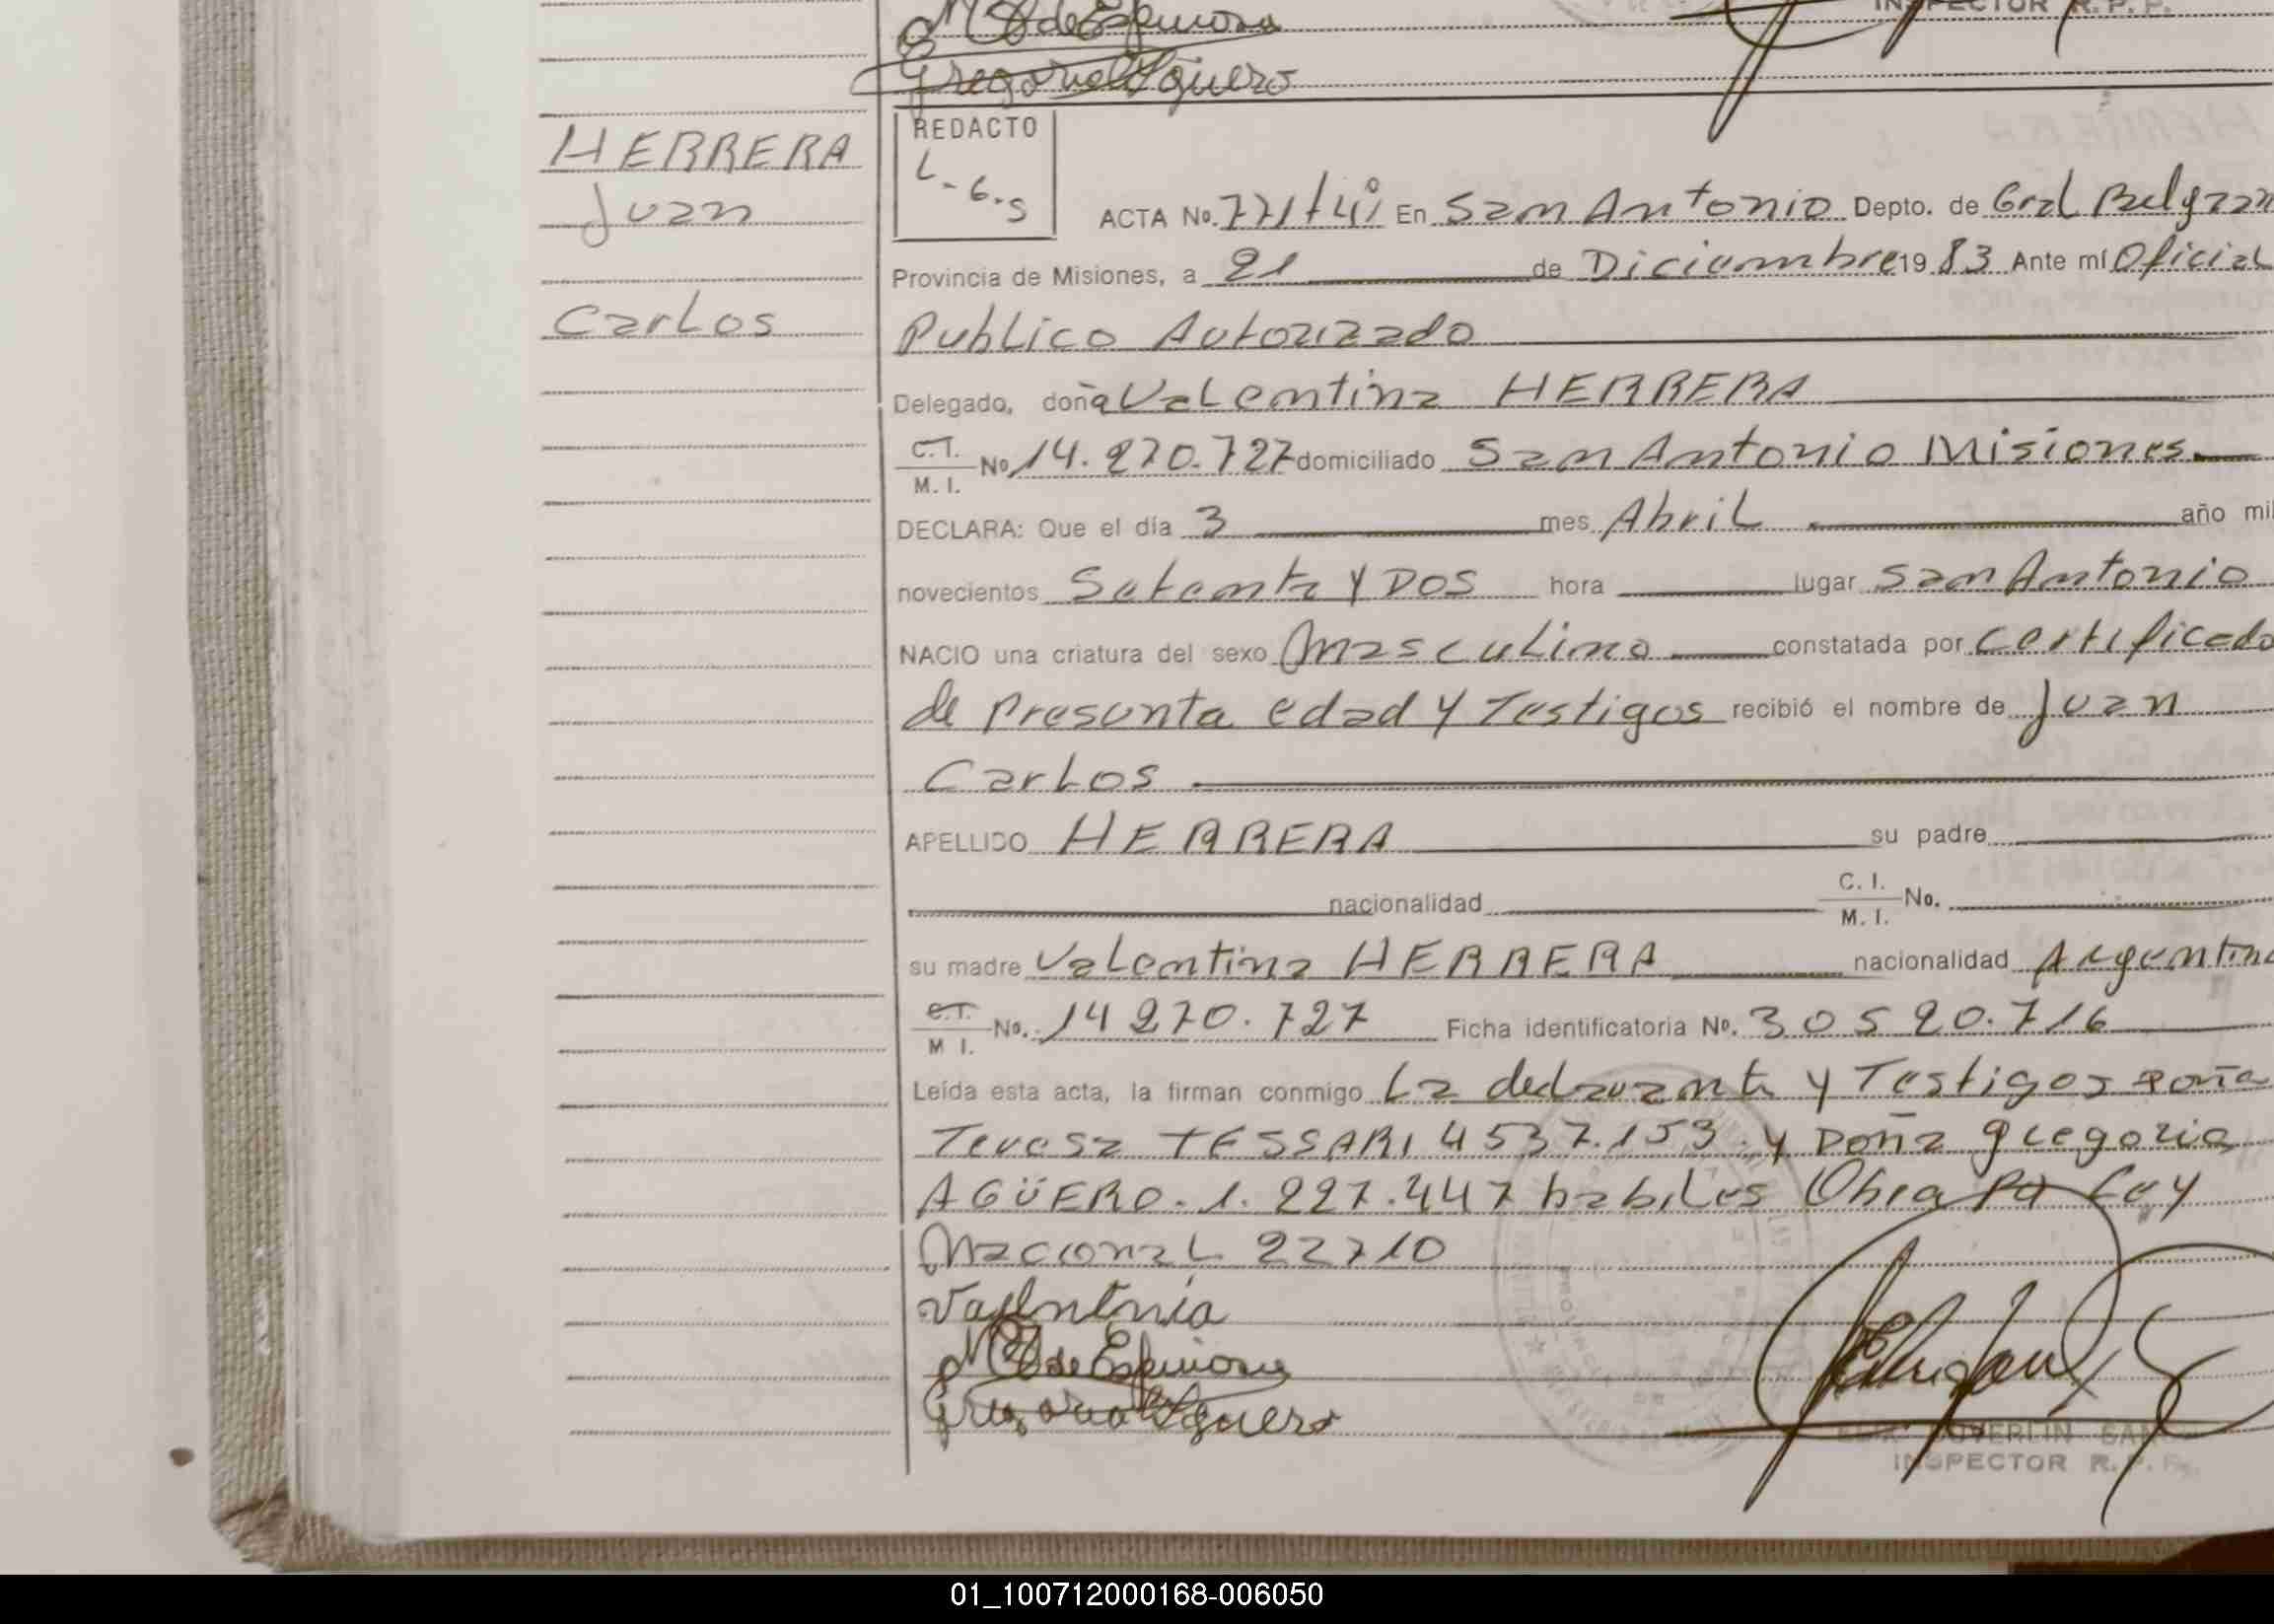 M T de Espinosa
INSPECTOR R. P. P.
Gregoria Agüero
HERRERA
Juan
Carlos
REDACTO
L-6-S
ACTA No. 771/4i En San Antonio Depto. de Gral Belgran
Provincia de Misiones, a 21 de Diciembre 19 83 Ante mí Oficial
Publico Autorizado
Delegado, doña Valentina HERRERA
C.I. M. I. No 14.270.727 domiciliado San Antonio Misiones
DECLARA: Que el día 3 mes Abril año mil
novecientos Setenta y DOS hora lugar San Antonio
NACIO una criatura del sexo Masculino constatada por Certificado
de Presunta edad y Testigos recibió el nombre de Juan
Carlos
APELLIDO HERRERA su padre
nacionalidad C. I. M. I. No.
su madre Valentina HERRERA nacionalidad Argentina
C.I. M I. No. 14 270.727 Ficha identificatoria No. 30520.716
Leída esta acta, la firman conmigo La declarante y Testigos Doña
Teresa TESSARI 4537.153. y Doña Gregoria
AGÜERO. 1.227.447 habiles Ley
Nacional 22710
Valentnia
M T de Espinosa
Gregoria Agüero
INSPECTOR R. P. P.
01_100712000168-006050